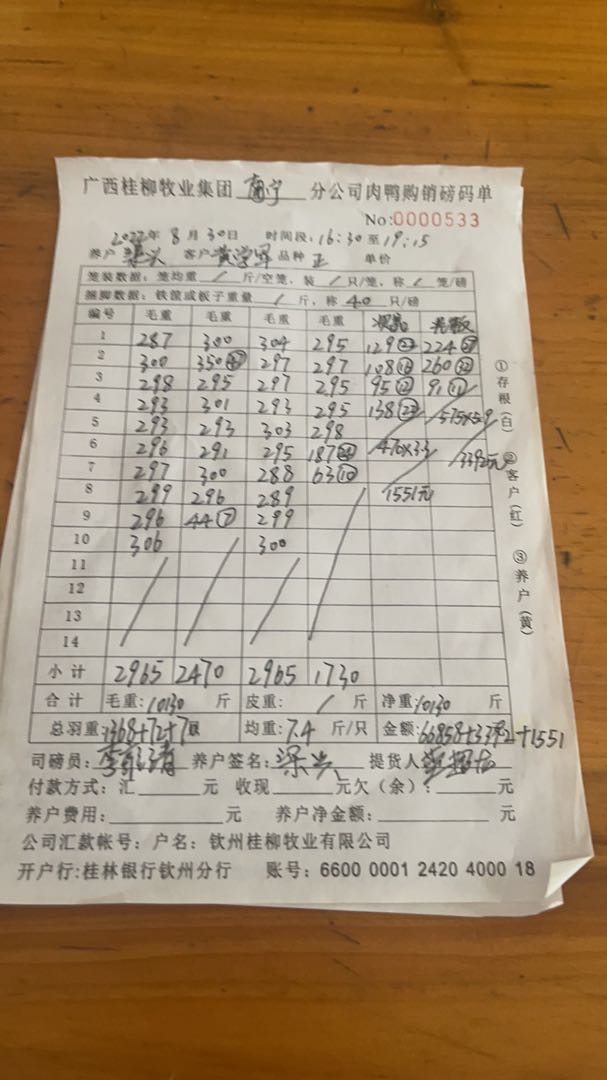 广西桂柳牧业集团 南宁 分公司肉鸭购销磅码单
No:0000533
2022年8月30日 时间段:16:30至19:15
养户 梁兴 客户 黄 品种 正 单价
笼装数据:笼均重 / 斤/空笼,装 / 只/笼,称 / 笼/磅
捆脚数据:铁筐或板子重量 / 斤,称 40 只/磅
编号 毛重 毛重 毛重 毛重
1 287 300 304 295 129 224
2 300 350 297 297 108 260
3 298 295 297 295 95⑫ 91⑪
4 293 301 293 295 138 575×5.9
5 293 293 303 298
6 296 291 295 187 470×3.3 3392元
7 297 300 288 63⑩
8 299 296 289 1551元
9 296 44⑦ 299
10 306 300
11
12
13
14
小计 2965 2470 2965 1730
合计 毛重:10130 斤 皮重: / 斤 净重:10130 斤
总羽重:1368+72+7 均重:7.4 斤/只 金额:66858+3392+1551
司磅员: 养户签名:梁兴 提货人
付款方式:汇 元 收现 元欠(余): 元
养户费用: 元 养户净金额: 元
公司汇款帐号:户名:钦州桂柳牧业有限公司
开户行:桂林银行钦州分行 账号:6600 0001 2420 4000 18
①存根(白)
②客户(红)
③养户(黄)